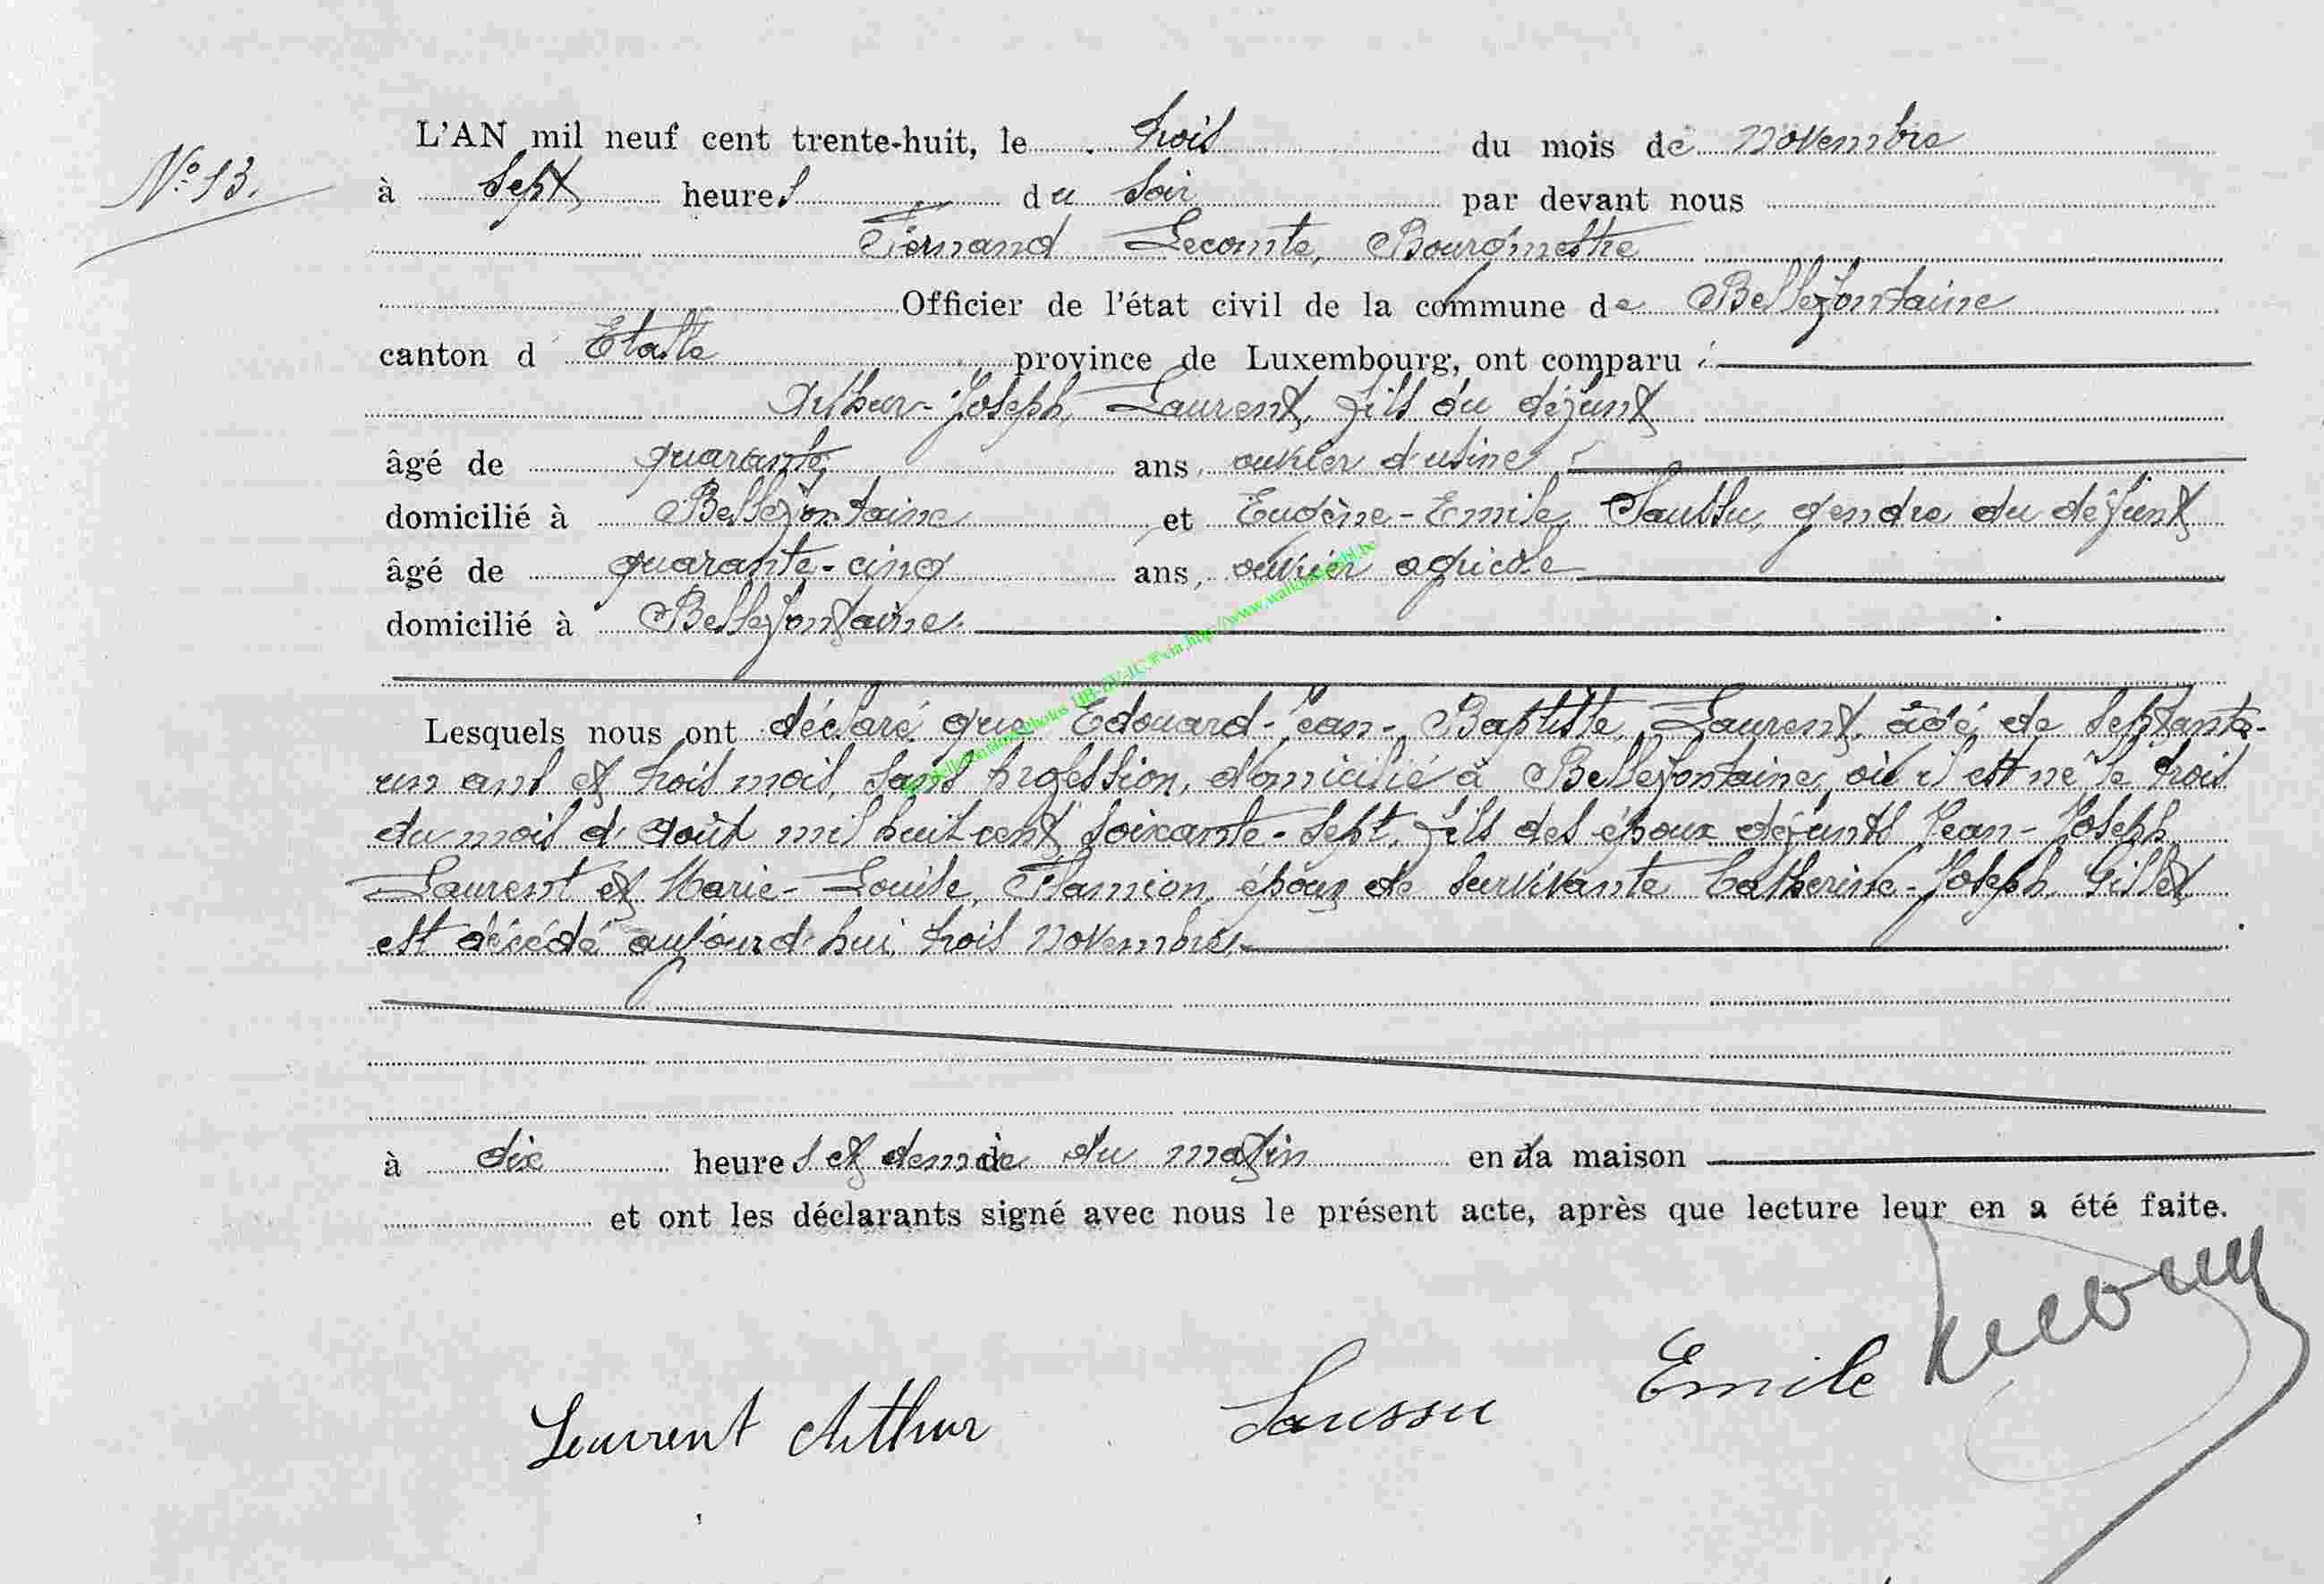 N° 13.
L'AN mil neuf cent trente-huit, le trois du mois de novembre
à sept heures du soir par devant nous
Fernand Lecomte, Bourgmestre
Officier de l'état civil de la commune de Bellefontaine
canton d'Etalle province de Luxembourg, ont comparu :
Arthur-Joseph, Laurent, fils du défunt
âgé de quarante ans, ouvrier d'usine,
domicilié à Bellefontaine et Eugène-Emile, Saussu, gendre du défunt
âgé de quarante-cinq ans, ouvrier agricole
domicilié à Bellefontaine.
Lesquels nous ont déclaré que Edouard-Jean-Baptiste, Laurent, âgé de septante-
un ans et trois mois, sans profession, domicilié à Bellefontaine, où il est né le trois
du mois d'août mil huit cent soixante-sept, fils des époux défunts Jean-Joseph
Laurent et Marie-Louise, Flamion, époux de survivante Catherine-Joseph, Gillet
est décédé aujourd'hui, trois novembre,
à dix heures et demie du matin en sa maison
et ont les déclarants signé avec nous le présent acte, après que lecture leur en a été faite.
Laurent Arthur Saussu Emile